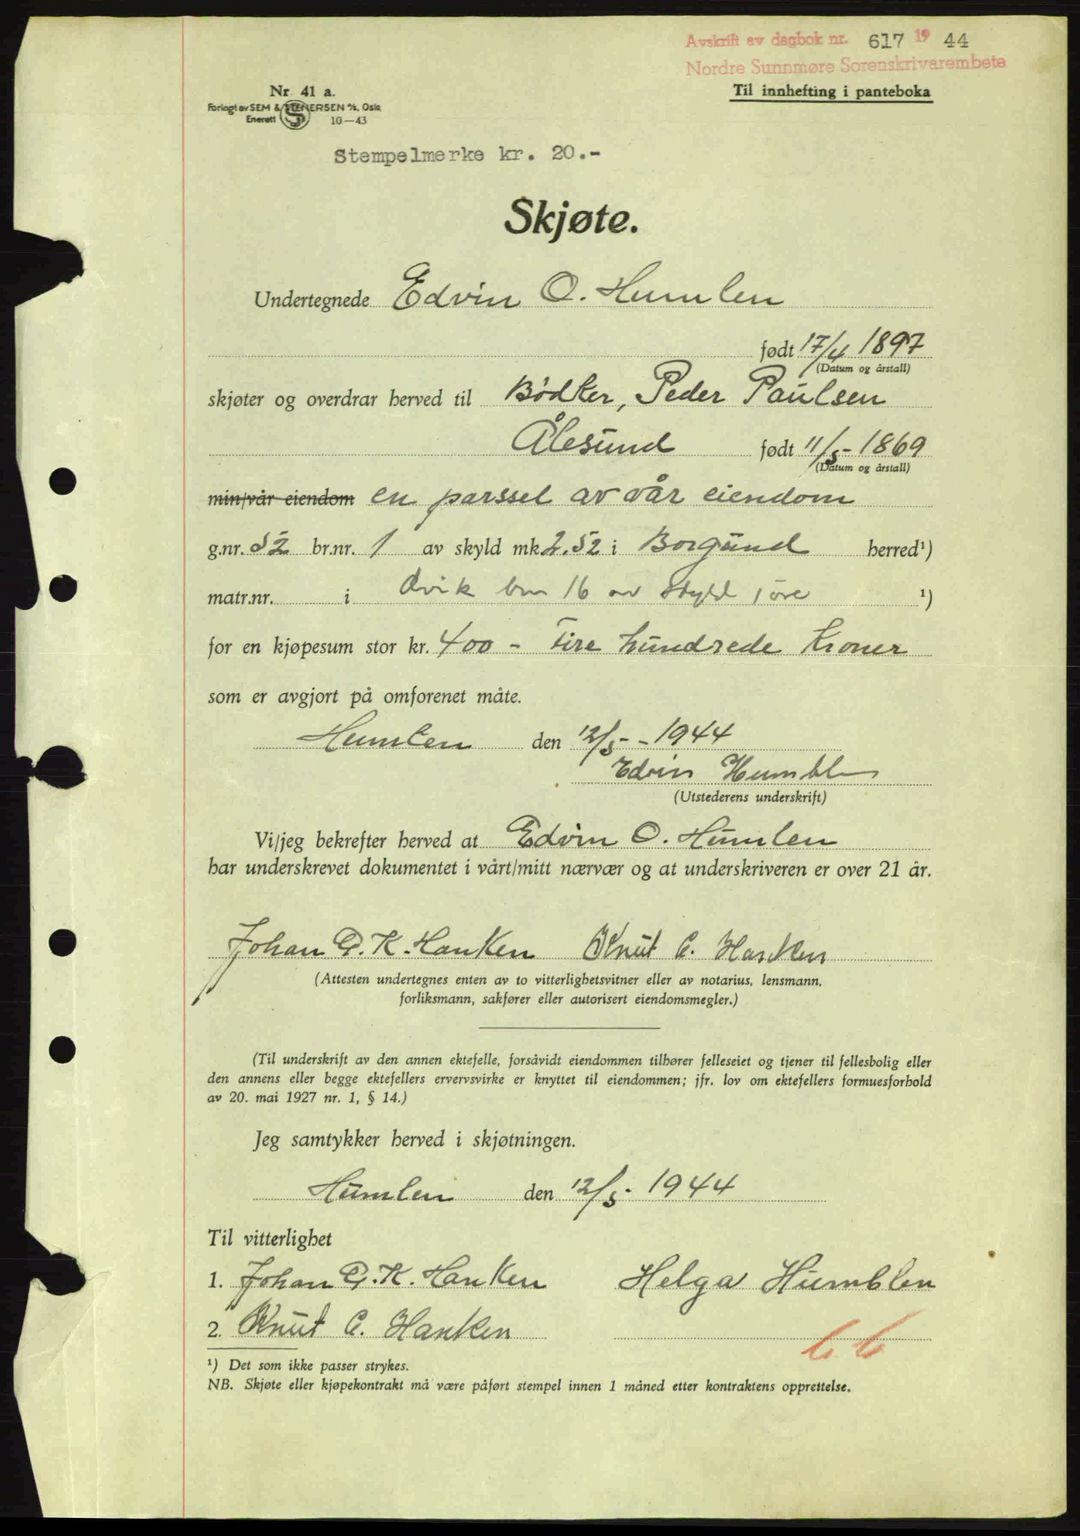 Avskrift av dagbok nr. 617 1944
Nordre Sunnmøre Sorenskrivarembete
Til innhefting i panteboka
Nr. 41 a.
Forlagt av SEM & STENERSEN A/S, Oslo
Enerett S 10—43
Stempelmerke kr. 20.-
Skjøte.
Undertegnede Edvin O. Humlen
født 17/4 1897
(Datum og årstall)
skjøter og overdrar herved til Bødker, Peder Paulsen
Ålesund født 11/5- 1869
(Datum og årstall)
min/vår eiendom en parssel av vår eiendom
g.nr. 52 br.nr. 1 av skyld mk 2.52 i Borgund herred¹)
matr.nr. i dvik bnr 16 av skyld 1 øre ¹)
for en kjøpesum stor kr. 400 - Fire hundrede Kroner
som er avgjort på omforenet måte.
Humlen den 12/5- - 1944
Edvin Humblen
(Utstederens underskrift)
Vi/jeg bekrefter herved at Edvin O. Humlen
har underskrevet dokumentet i vårt/mitt nærvær og at underskriveren er over 21 år.
Johan G. K. Hanken Knut C. Hanken
(Attesten undertegnes enten av to vitterlighetsvitner eller av notarius, lensmann,
forliksmann, sakfører eller autorisert eiendomsmegler.)
(Til underskrift av den annen ektefelle, forsåvidt eiendommen tilhører felleseiet og tjener til fellesbolig eller
den annens eller begge ektefellers ervervsvirke er knyttet til eiendommen; jfr. lov om ektefellers formuesforhold
av 20. mai 1927 nr. 1, § 14.)
Jeg samtykker herved i skjøtningen.
Humlen den 12/5- 1944
Til vitterlighet
1. Johan G. K. Hanken Helga Humblen
2. Knut C. Hanken
¹) Det som ikke passer strykes.
NB. Skjøte eller kjøpekontrakt må være påført stempel innen 1 måned etter kontraktens opprettelse.